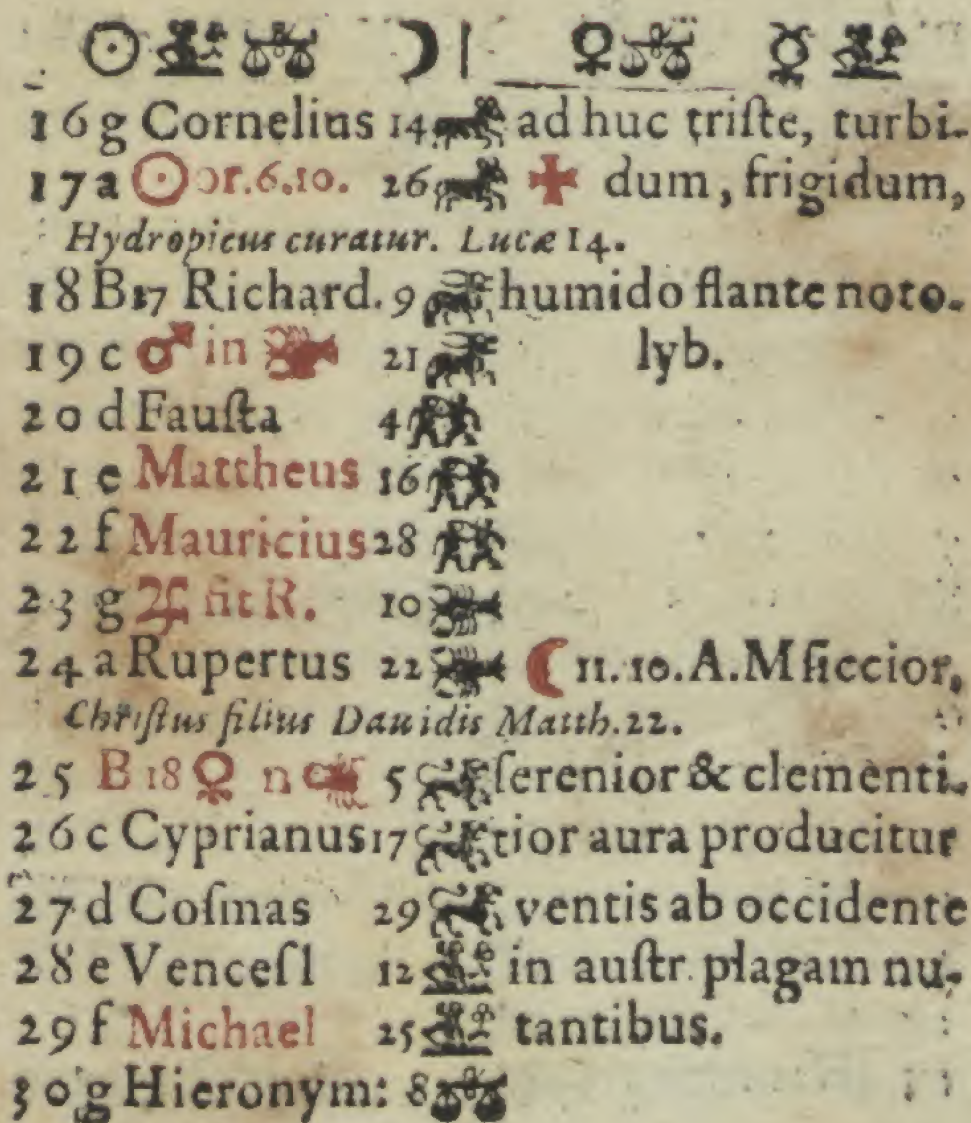 ☉ ♍ ♎ ☽ | ♀ ♎ ☿ ♍
16 g Cornelius 14 ♈ ad huc triſte, turbi-
17 a ☉ or. 6. 10. 26 ♈ ✚ dum, frigidum,
Hydropicus curatur. Lucæ 14.
18 B 17 Richard. 9 ♉ humido flante noto-
19 c ♂ in ♋ 21 ♉ lyb.
20 d Fauſta 4 ♊
21 e Mattheus 16 ♊
22 f Mauricius 28 ♊
23 g ♃ fit R. 10 ♋
24 a Rupertus 22 ♋ ☾ 11. 10. A. M ſiccior,
Chriſtus filius Dauidis Matth. 22.
25 B 18 ♀ n ♏ 5 ♌ ſerenior & clementi-
26 c Cyprianus 17 ♌ tior aura producitur
27 d Coſmas 29 ♌ ventis ab occidente
28 e Venceſl 12 ♍ in auſtr. plagam nu-
29 f Michael 25 ♍ tantibus.
30 g Hieronym: 8 ♎